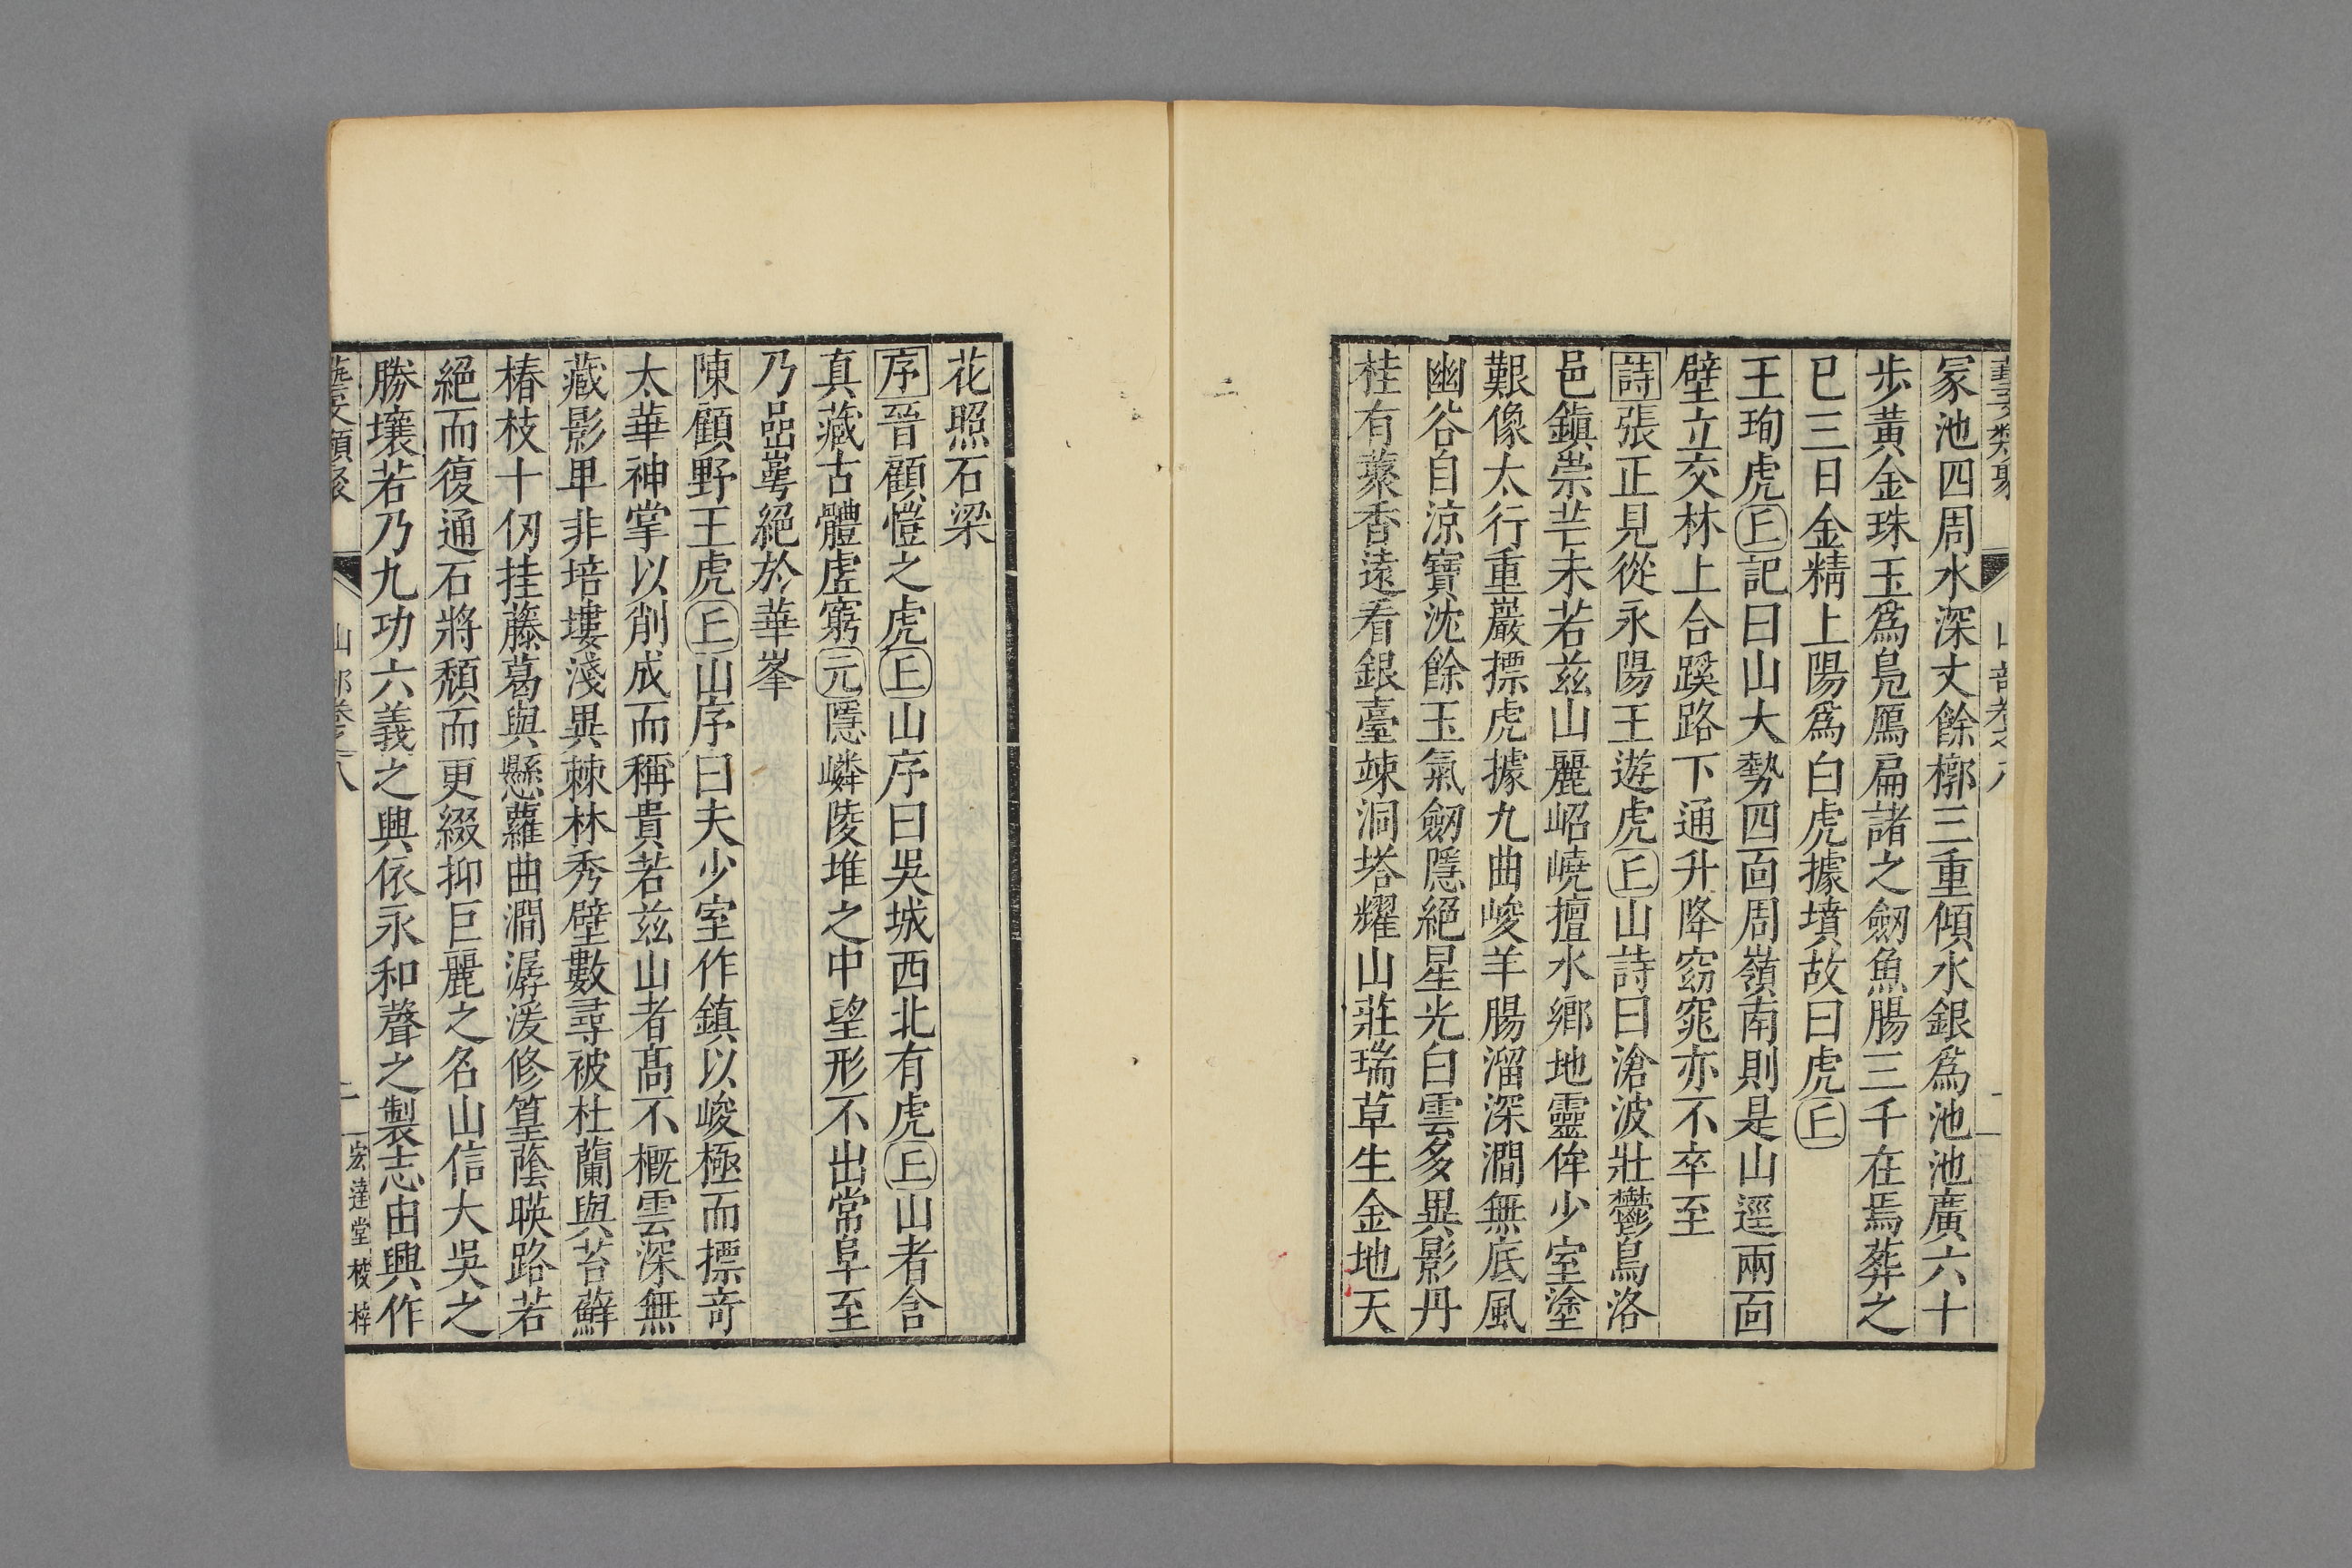 冡池四周水深丈餘槨三重傾水銀爲池池廣六十
歩黃金珠玉爲鳧鴈扁諸之劒魚腸三千在焉葬之
已三日金精上陽爲白虎據墳故曰虎𠀉
王珣虎𠀉記曰山大勢四面周嶺南則是山逕兩面
壁立交林上合蹊路下通升降窈窕亦不卒至
詩張正見從永陽王遊虎𠀉山詩曰滄波壯鬱島洛
邑鎭崇芒未若兹山麗岹嶢擅水鄉地靈侔少室塗
艱像太行重巖摽虎據九曲峻羊腸溜深澗無底風
幽谷自涼寶沈餘玉氣劒隱絕星光白雲多異影丹
桂有藂香遠看銀臺竦洞塔耀山莊瑞草生金地天
花照石梁
序晉顧愷之虎𠀉山序曰吳城西北有虎𠀉山者含
真藏古體虛窮元隱嶙陵堆之中望形不出常阜至
乃嵒崿絕於華峯
陳顧野王虎𠀉山序曰夫少室作鎮以峻極而摽竒
太華神掌以削成而稱貴若兹山者髙不概雲深無
藏影卑非培塿淺異棘林秀壁數尋被杜蘭與苔蘚
椿枝十仭挂藤葛與懸蘿曲澗潺湲修篁蔭暎路若
絕而復通石將頹而更綴抑巨麗之名山信大吳之
勝壤若乃九功六義之興依永和聲之製志由興作
藝文類聚 山部卷之八 二 宏達堂校梓